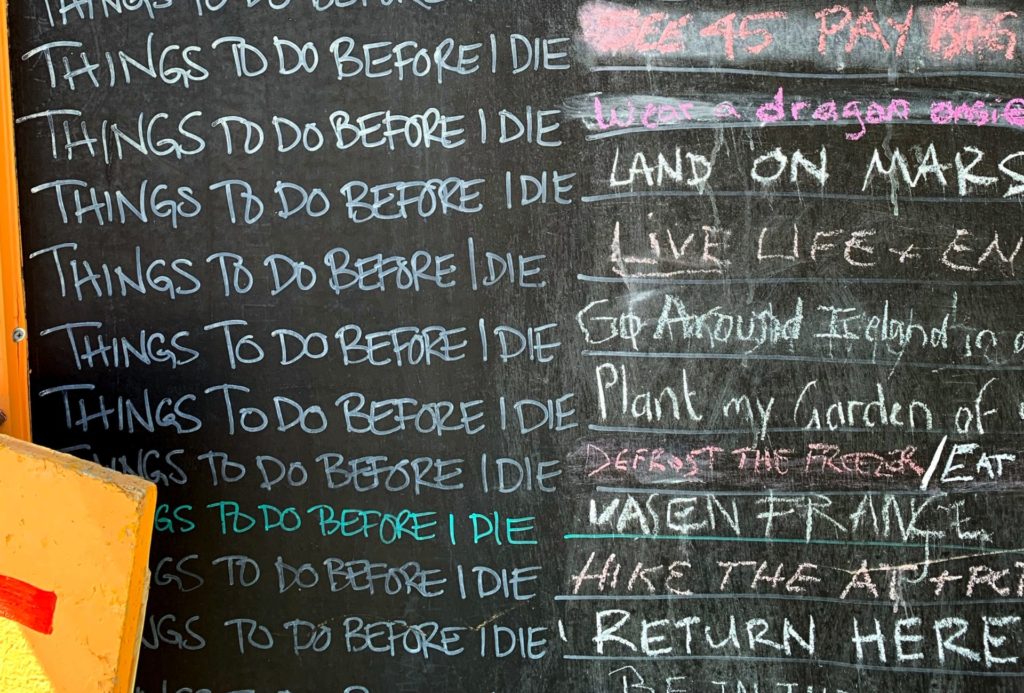 THINGS TO DO BEFORE
THINGS TO DO BEFORE I DIE SEE 45 PAY
THINGS TO DO BEFORE I DIE Wear a dragon onsie
THINGS TO DO BEFORE I DIE LAND ON MARS
THINGS TO DO BEFORE I DIE LIVE LIFE + EN
THINGS TO DO BEFORE I DIE Go Around Iceland in a
THINGS TO DO BEFORE I DIE Plant my Garden of
THINGS TO DO BEFORE I DIE DEFROST THE FREEZER/EAT
GS TO DO BEFORE I DIE FRANCE
GS TO DO BEFORE I DIE HIKE THE AT + PCT
NGS TO DO BEFORE I DIE RETURN HERE
BE IN